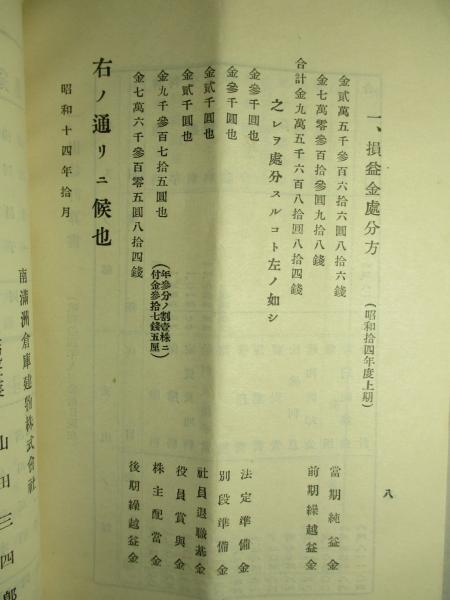 八
一、損益金處分方 (昭和拾四年度上期)
金貳萬五千參百六拾六圓八拾六錢 當期純益金
金七萬零參百拾參圓九拾八錢 前期繰越益金
合計金九萬五千六百八拾圓八拾四錢
之レヲ處分スルコト左ノ如シ
金參千圓也 法定準備金
金參千圓也 別段準備金
金貳千圓也 社員退職基金
金貳千圓也 役員賞與金
金九千參百七拾五圓也 (年參分ノ割壹株ニ付金參拾七錢五厘) 株主配當金
金七萬六千參百零五圓八拾四錢 後期繰越益金
右ノ通リニ候也
昭和十四年拾月
南滿洲倉庫建物株式會社
山田三四郎